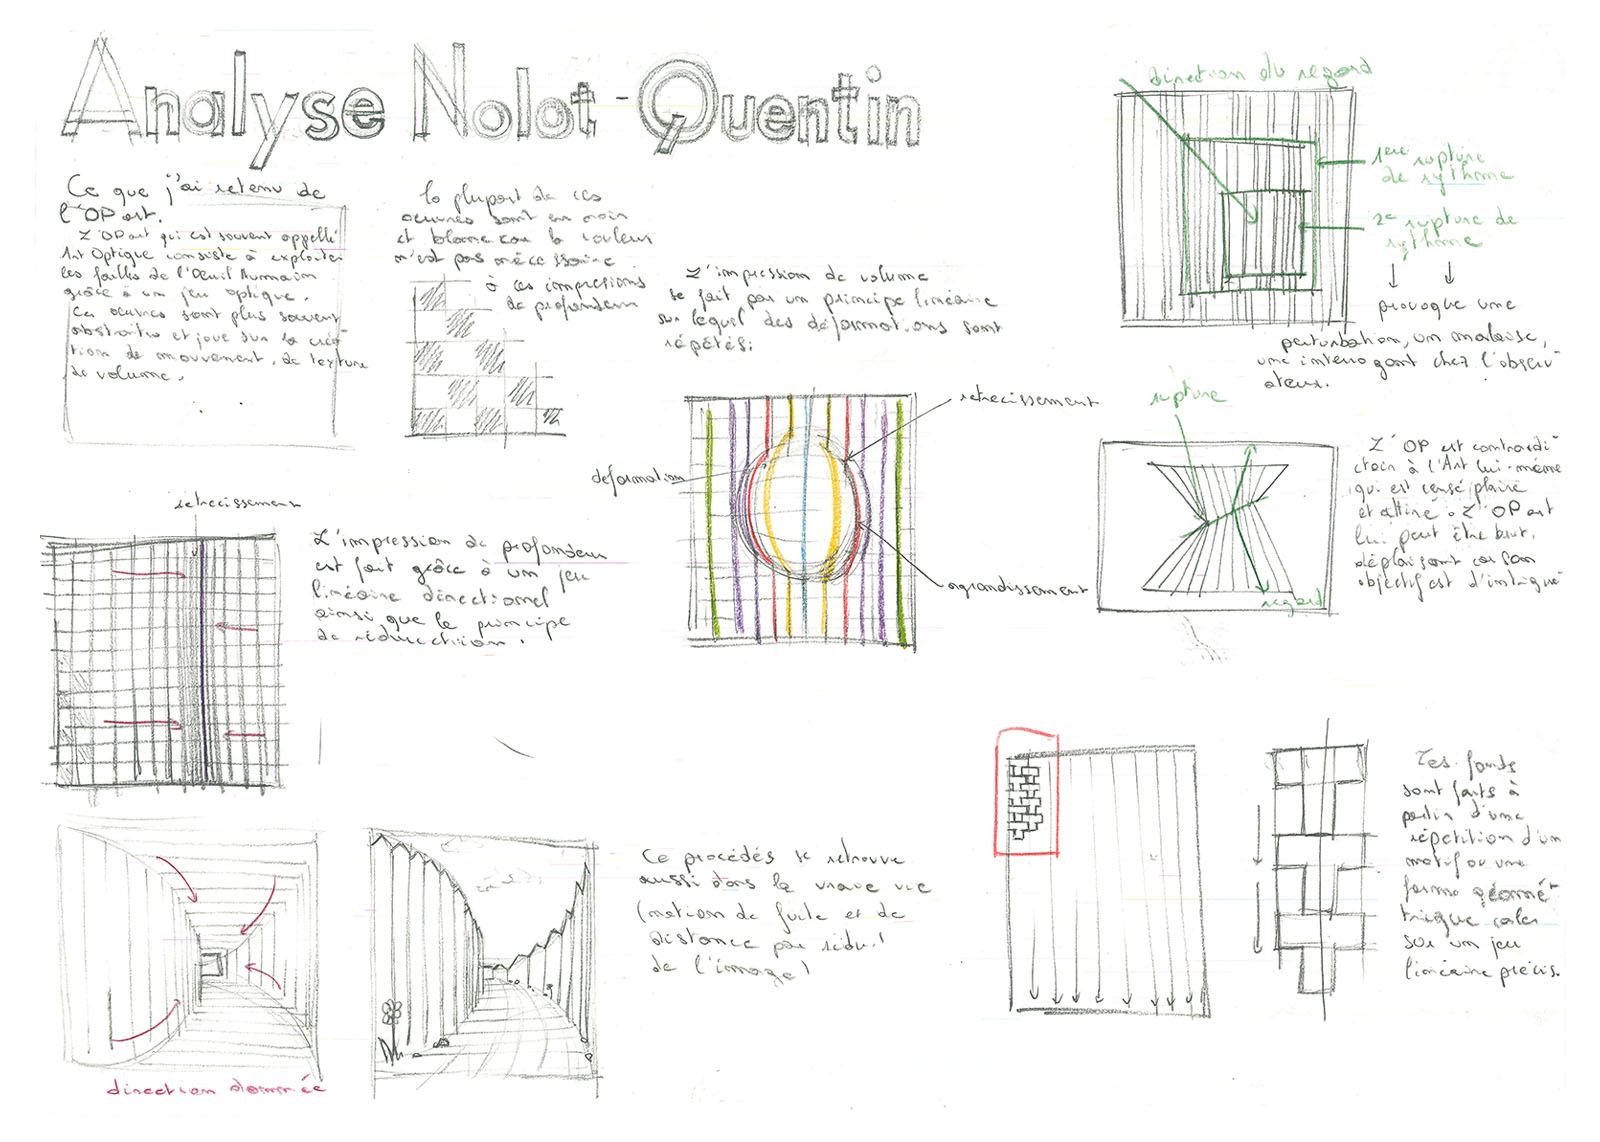 Analyse Nolot-Quentin
Ce que j'ai retenu de
l'OP art.
L'OP art qui est souvent appellé
Art Optique consiste à exploiter
les failles de l'Oeuil Humain
grâce à un jeu optique.
Ces oeuvres sont plus souvent
abstraites et joue sur la créa
tion de mouvement, de texture
de volume.
la plupart de ces
oeuvres sont en noir
et blanc car la couleur
n'est pas nécessaire
à ces impressions
de profondeur
L'impression de volume
se fait par un principe linéaire
sur lequel des déformations sont
répétés.
direction du regard
1ere rupture
de rythme
2e rupture de
rythme
provoque une
perturbation, un malaise,
une interrogant chez l'observ
ateur.
retrecissement
deformation
agrandissement
rupture
regard
L'OP est contradi
ctoin à l'Art lui-même
qui est censé plaire
et attiré. L'OP art
lui peut être brut,
déplaisant car son
objectif est d'intrigué
retrecissement
L'impression de profondeur
est fait grâce à un jeu
linéaire directionel
ainsi que le principe
de réduction.
direction donnée
Ce procédés se retrouve
aussi dans la vraie vie
(notion de fuite et de
distance par réduct
de l'image)
Les fonds
sont faits à
partir d'une
répétition d'un
motif ou une
forme géomét
trique caler
sur un jeu
linéaire précis.